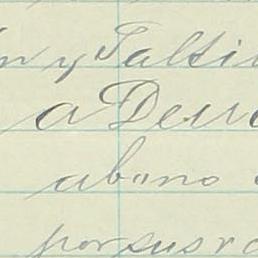 n y Falti
a Deu
abono
por sus r